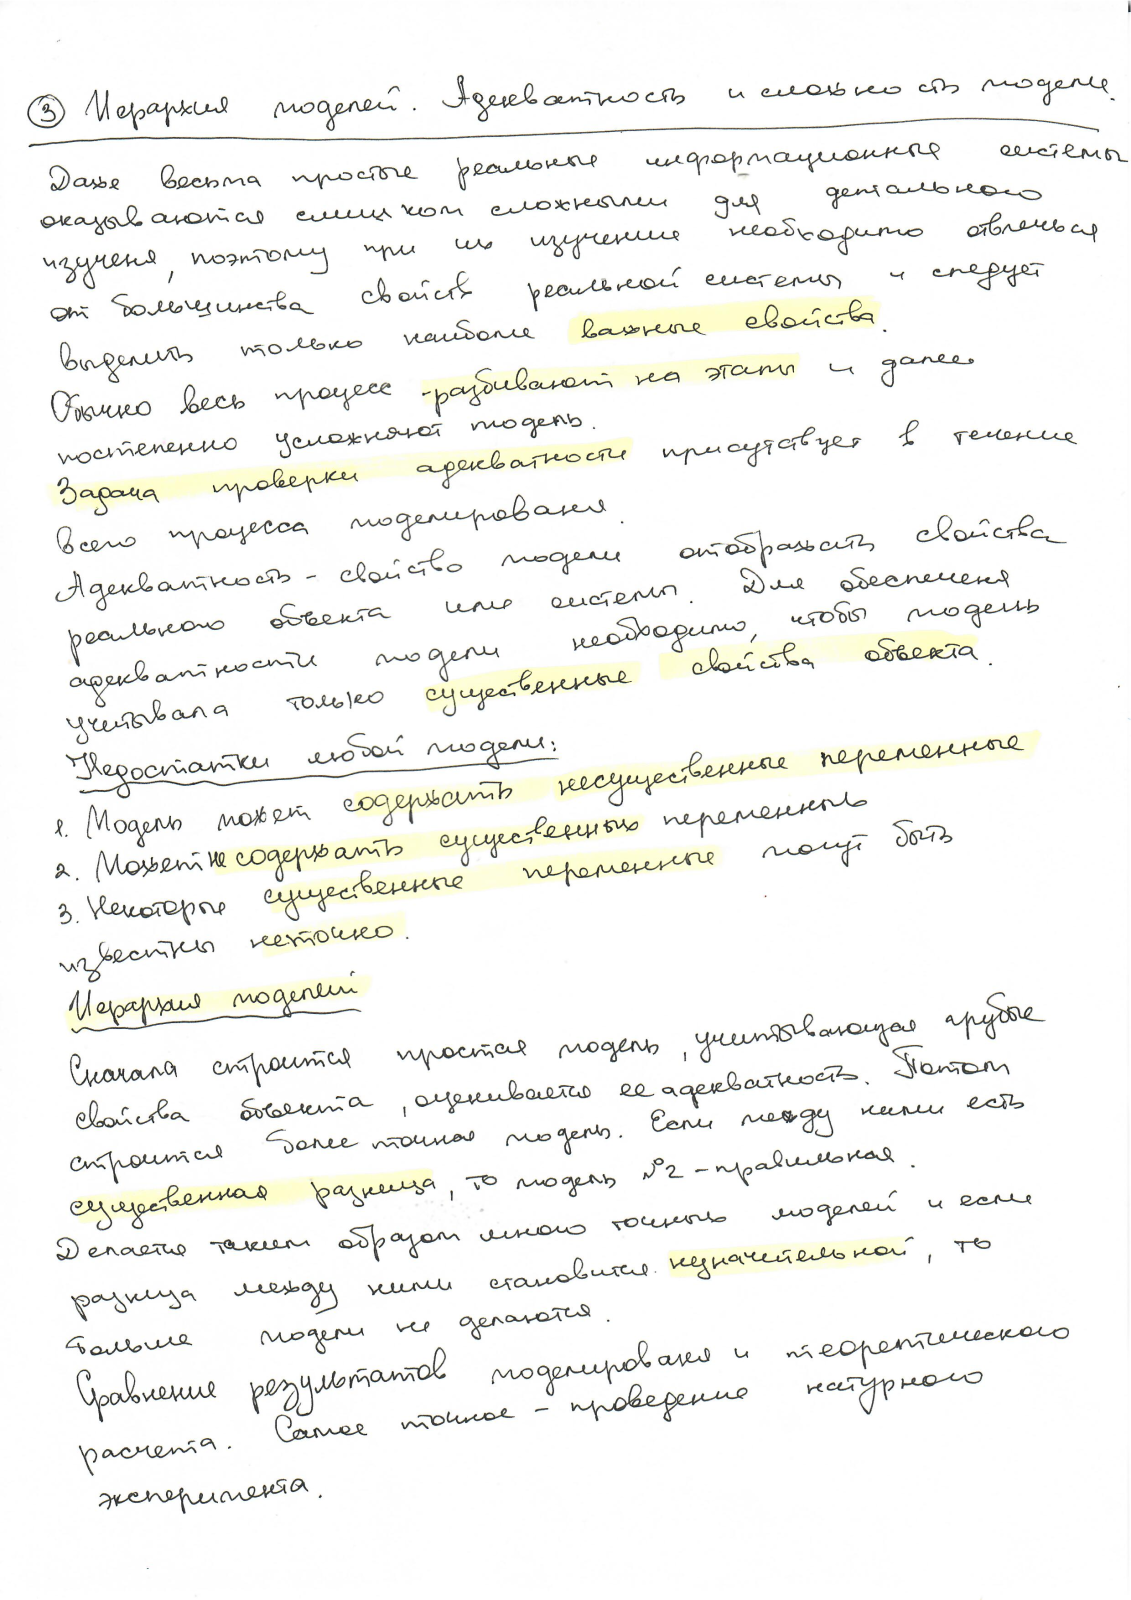 ③ Иерархия моделей. Адекватность и сложность модели.
Даже весьма простые реальные информационные системы
оказываются слишком сложными для детального
изученя, поэтому при их изучение необходимо отвлечься
от большинства свойств реальной системы и следует
выделить только наиболее важные свойства.
Обычно весь процесс разбивают на этапы и далее
постепенно усложняют модель.
Задача проверки адекватности присутствует в течение
всего процесса моделирования.
Адекватность - свойство модели отображать свойства
реального объекта или системы. Для обеспеченя
адекватности модели необходимо, чтобы модель
учитывала только существенные свойства объекта.
Недостатки любой модели:
1. Модель может содержать несущественные переменные
2. Может не содержать существенных переменных
3. Некоторые существенные переменные могут быть
известны неточно.
Иерархия моделей
Сначала строится простая модель, учитывающая грубые
свойства объекта, оценивается ее адекватность. Потом
строится более точная модель. Если между ними есть
существенная разница, то модель №2 - правильная.
Делается таким образом много точных моделей и если
разница между ними становится незначительной, то
больше модели не делаются.
Сравнение результатов моделирования и теоретического
расчета. Самое точное - проведение натурного
эксперимента.